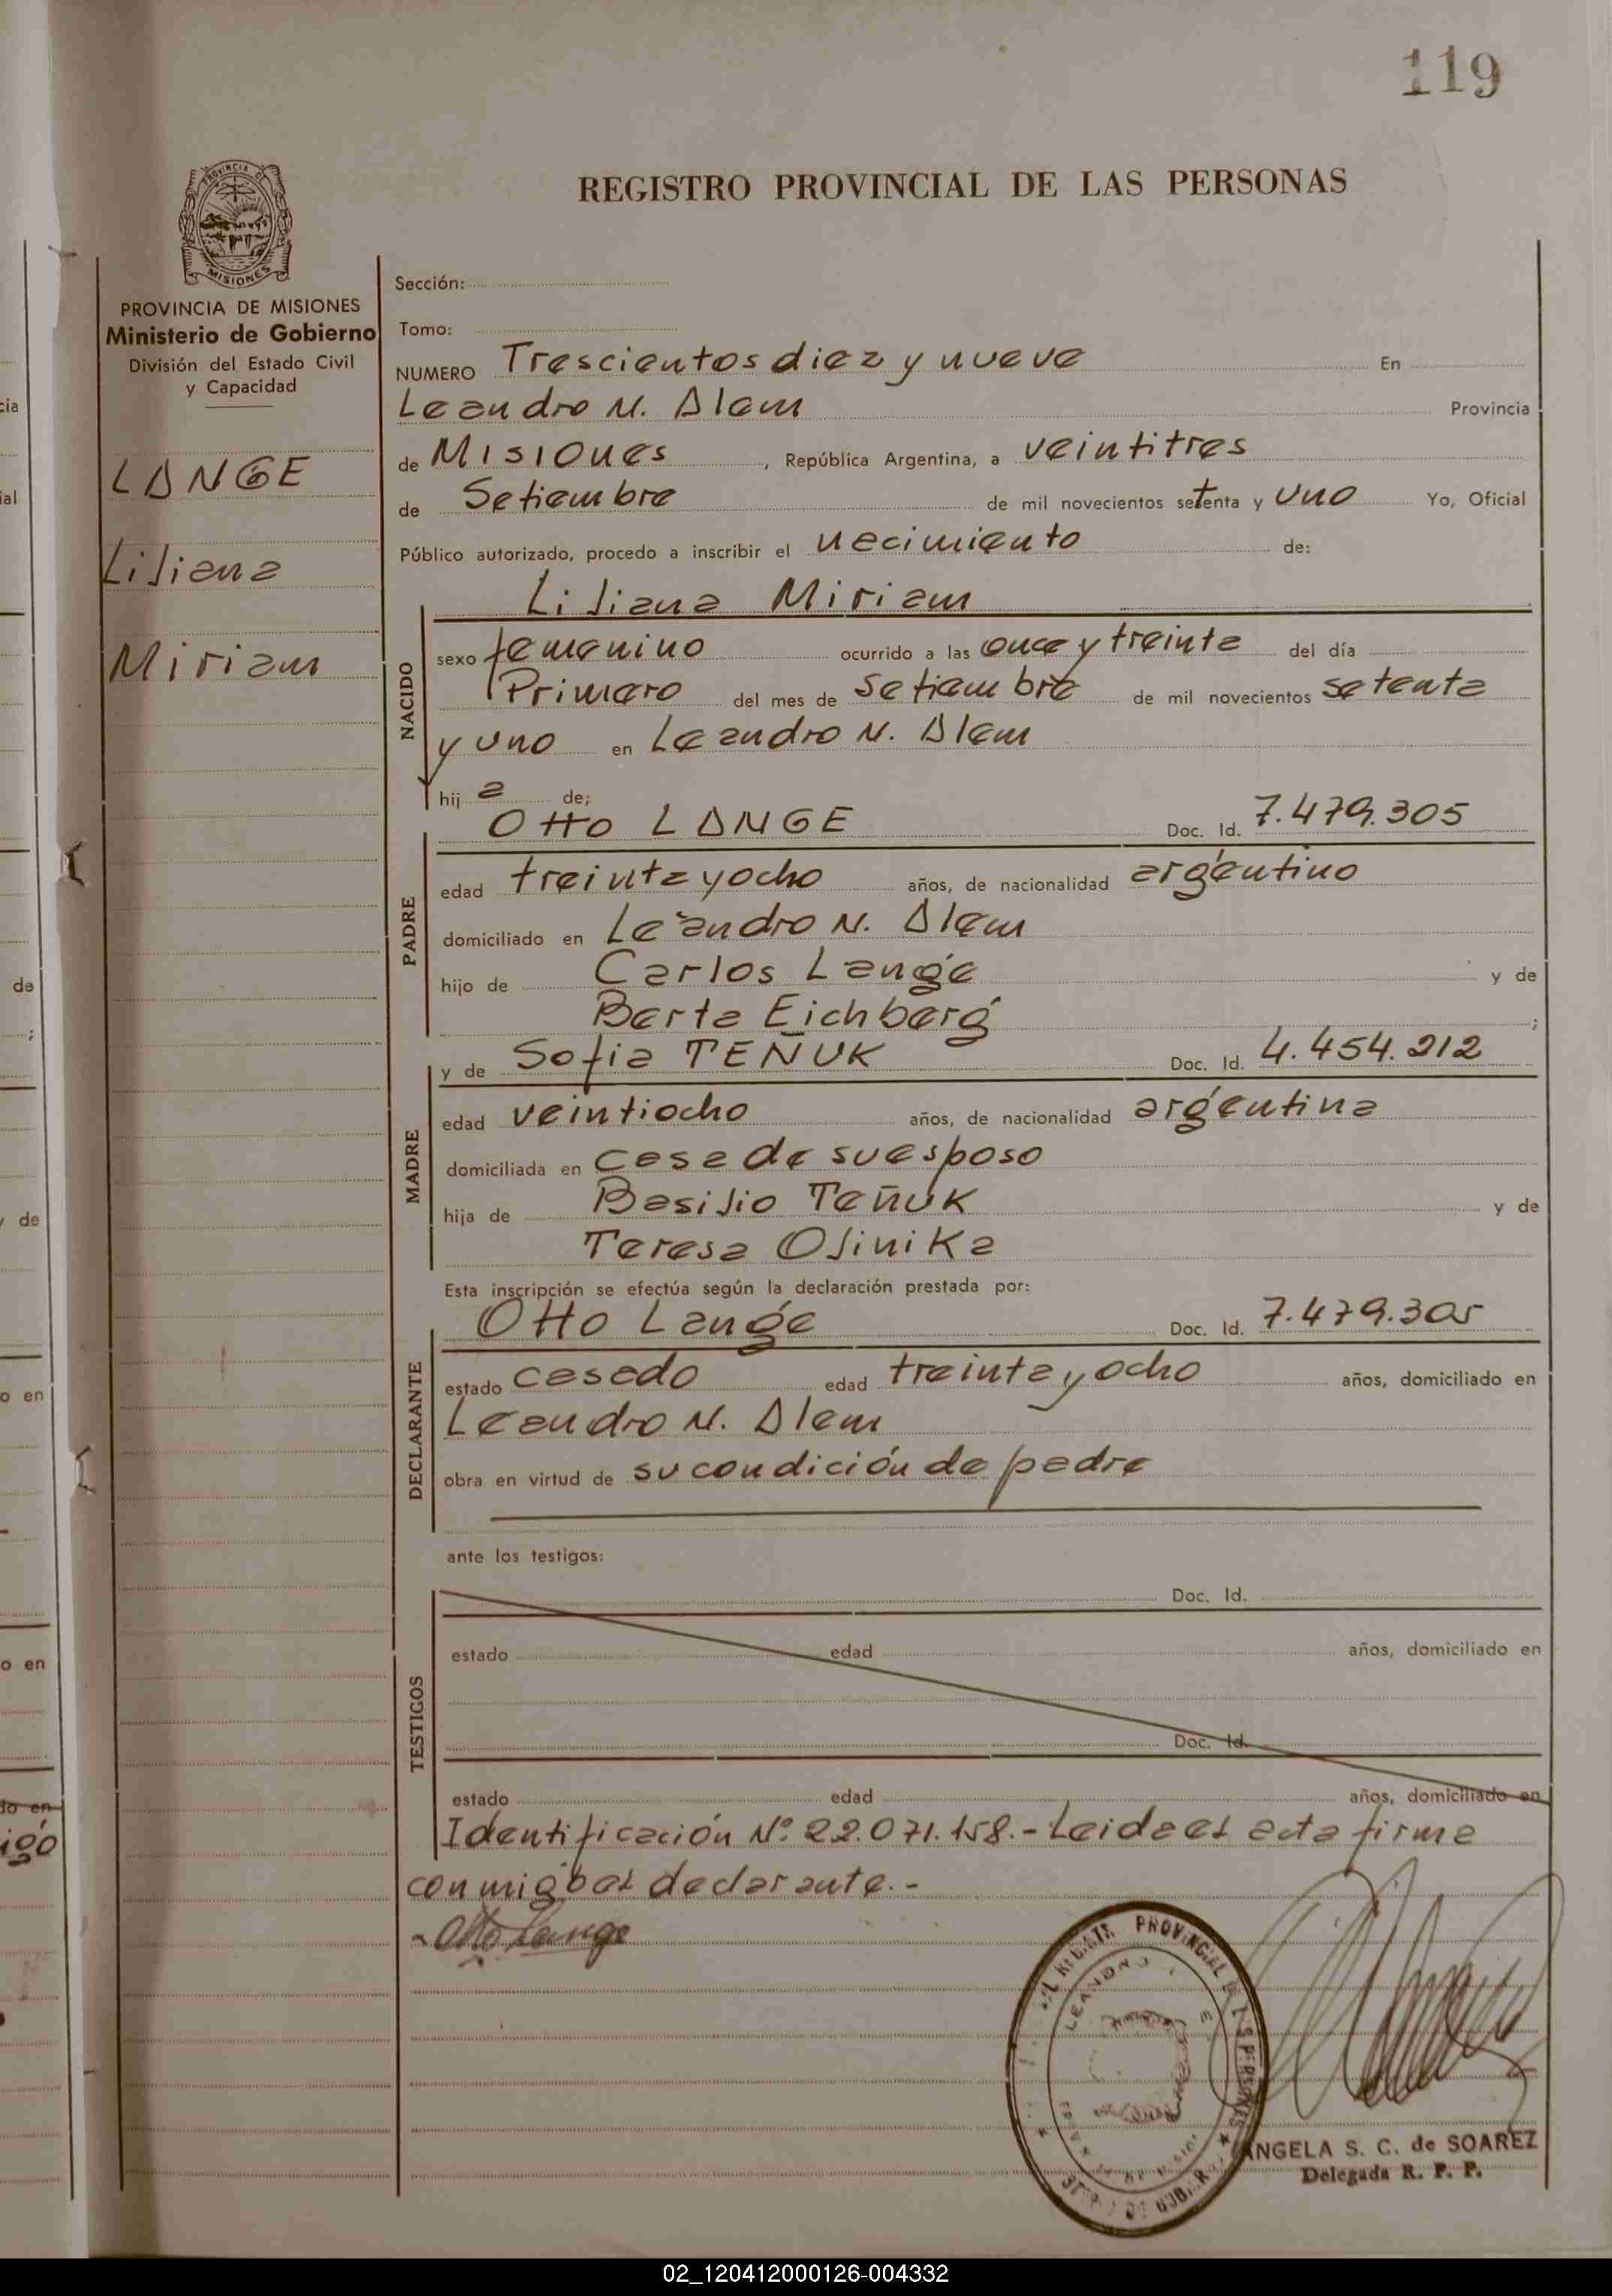 119
REGISTRO PROVINCIAL DE LAS PERSONAS
MISIONES
PROVINCIA DE MISIONES
Ministerio de Gobierno
División del Estado Civil
y Capacidad
LANGE
Liliana
Miriam
Sección:
Tomo:
NUMERO Trescientos diez y nueve En
Leandro N. Alem Provincia
de Misiones, República Argentina, a veintitres
de Setiembre de mil novecientos setenta y uno Yo, Oficial
Público autorizado, procedo a inscribir el nacimiento de:
Liliana Miriam
NACIDO
sexo femenino ocurrido a las once y treinta del día
Primero del mes de Setiembre de mil novecientos setenta
y uno en Leandro N. Alem
hija de;
Otto LANGE Doc. Id. 7.479.305
PADRE
edad treinta y ocho años, de nacionalidad argentino
domiciliado en Leandro N. Alem
hijo de Carlos Lange y de
Berta Eichberg ;
y de Sofia TEÑUK Doc. Id. 4.454.212
MADRE
edad veintiocho años, de nacionalidad argentina
domiciliada en casa de su esposo
hija de Basilio Teñuk y de
Teresa Olinika
Esta inscripción se efectúa según la declaración prestada por:
Otto Lange Doc. Id. 7.479.305
DECLARANTE
estado casado edad treinta y ocho años, domiciliado en
Leandro N. Alem
obra en virtud de su condición de padre
ante los testigos:
Doc. Id.
TESTIGOS
estado edad años, domiciliado en
Doc. Id.
estado edad años, domiciliado en
Identificación Nº 22.071.158.- Leida el acta firma
conmigo el declarante.-
Otto Lange
PROVINCIAL
LEANDRO
ANGELA S. C. de SOAREZ
Delegada R. P. P.
02_120412000126-004332